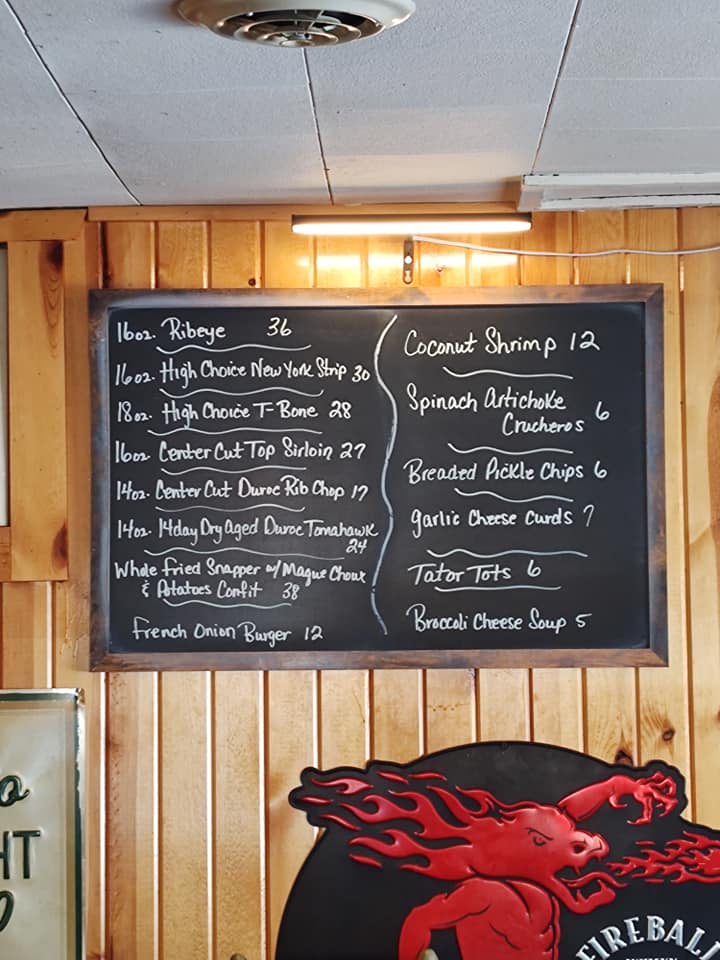 16oz. Ribeye 36
16oz. High Choice New York Strip 30
18oz. High Choice T-Bone 28
16oz. Center Cut Top Sirloin 27
14oz. Center Cut Duroc Rib Chop 17
14oz. 14day Dry Aged Duroc Tomahawk
24
Whole Fried Snapper w/ Maque Choux
& Potatoes Confit 38
French Onion Burger 12
Coconut Shrimp 12
Spinach Artichoke
Crucheros 6
Breaded Pickle Chips 6
Garlic Cheese Curds 7
Tator Tots 6
Broccoli Cheese Soup 5
FIREBALL